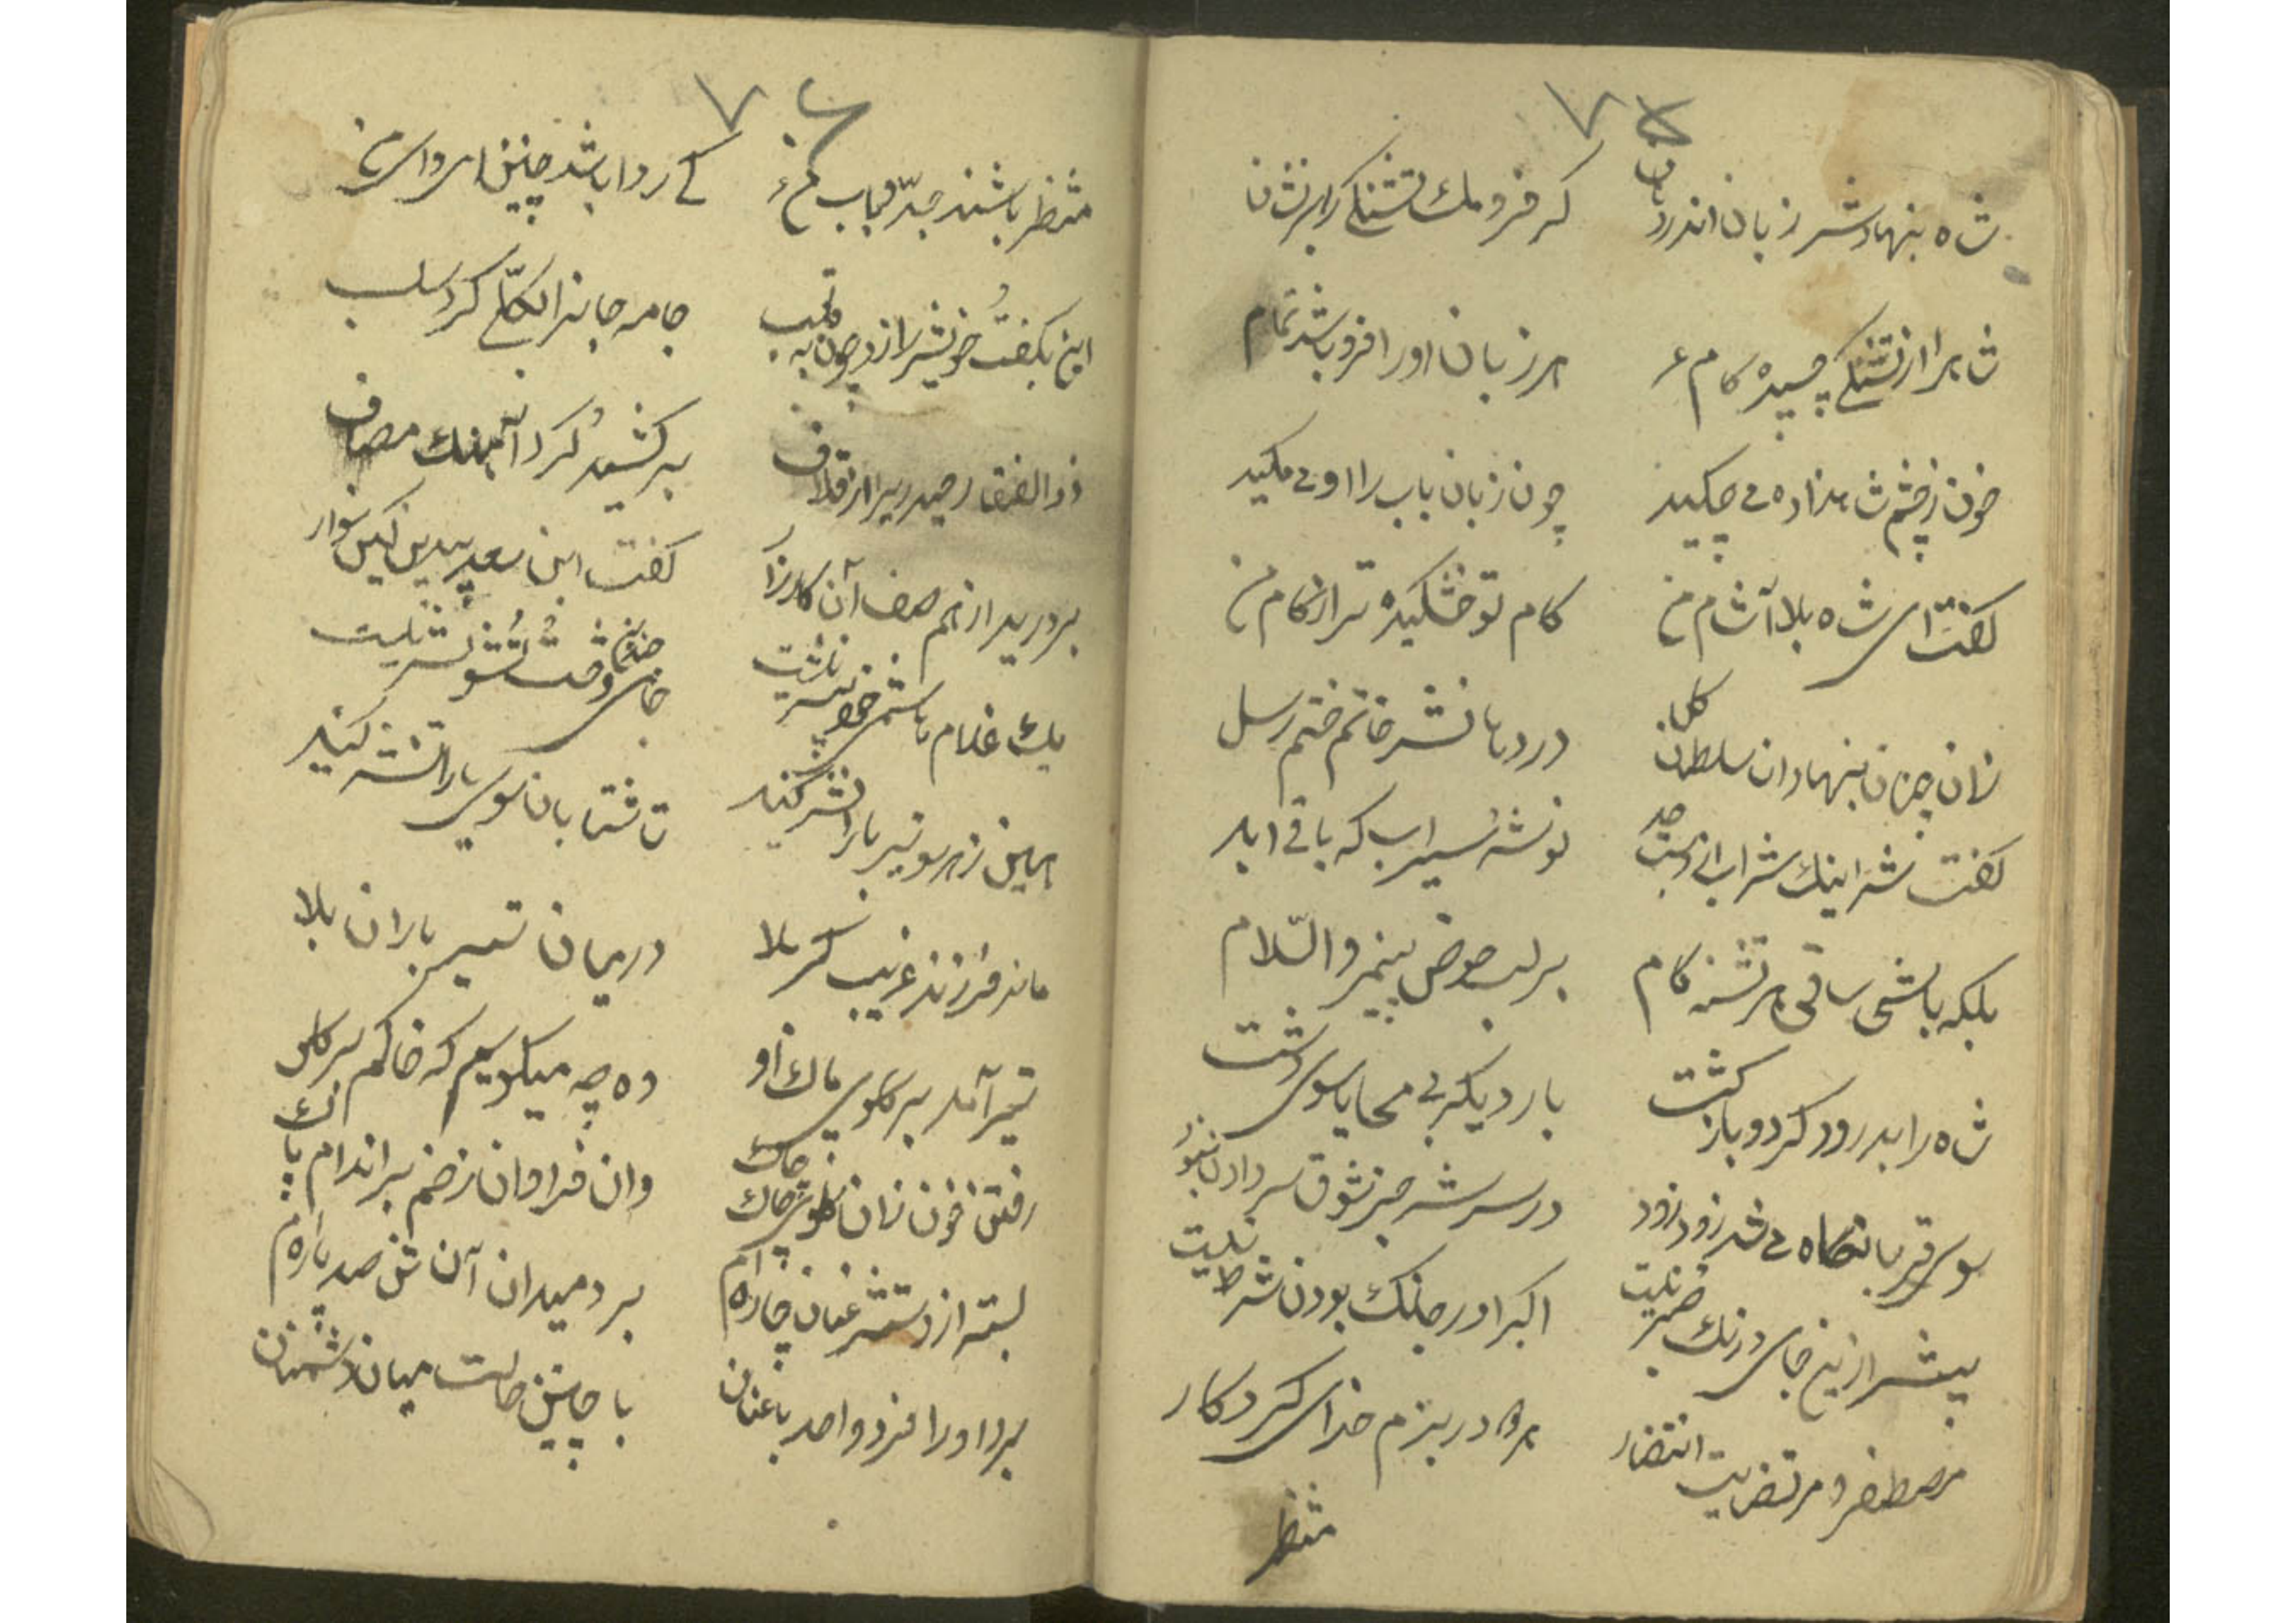 شاه بنهادش زبان اندر دهان کز فرو مک تشنگی را بر نشان
شاه را از تشنگی چسپیده کام هر زبان او را فرو باشد تمام
خون ز چشم شاهزاده می چکید چون زبان باب را او می مکید
گفت ای شاه بلا آشام من کام تو خشکیده تر از کام من
زان پس بنهاد ان سلطان کل در دهانش خاتم ختم رسل
گفت شه اینک شراب بی ز حد نوشه سیراب که باقی ابد
بلکه باشی ساقی هر تشنه کام بر لب حوض پیمبر والسّلام
شاه را بدرود کرد و بازگشت بار دیگر بی محابا سوی دشت
سوی قربانگاه می شد زود زود در سرش جز شوق سر دادن نبود
بیش از این جای درنک صبر نیست اکبرا در جنگ بودن شرط نیست
مصطفی و مرتضایت انتظار در بزم خدای کردکار
منتظر
منتظر باشند جدّ و باب کی روا باشد چنین ای وای من
این بگفت خویش را زد چون به قلب جامه جان را بکلّی کرد سلب
ذوالفقار حیدری را از قلاف برکشید کرد آهنگ مصاف
بردرید از هم صف آن کارزار گفت ابن سعد بیدین کین سوار
یک غلام هاشمی نیست جای
هین ز هر سو تیر بارانش کنید تا شتابان سوی یارانش کنید
ماند فرزند غریب کربلا در میان تیر باران بلا
تیر آمد بر گلوی پاک او وه چه میگویم که خاکم بر گلو
رفتن خون زان گلوی چاک چاک وان فراوان زخم بر اندام پاک
بسته از دستش عنان چاره ام برد میدان آن تن صد پاره ام
برد او را فرد واحد با عنان با چنین حالت میان دشمنان